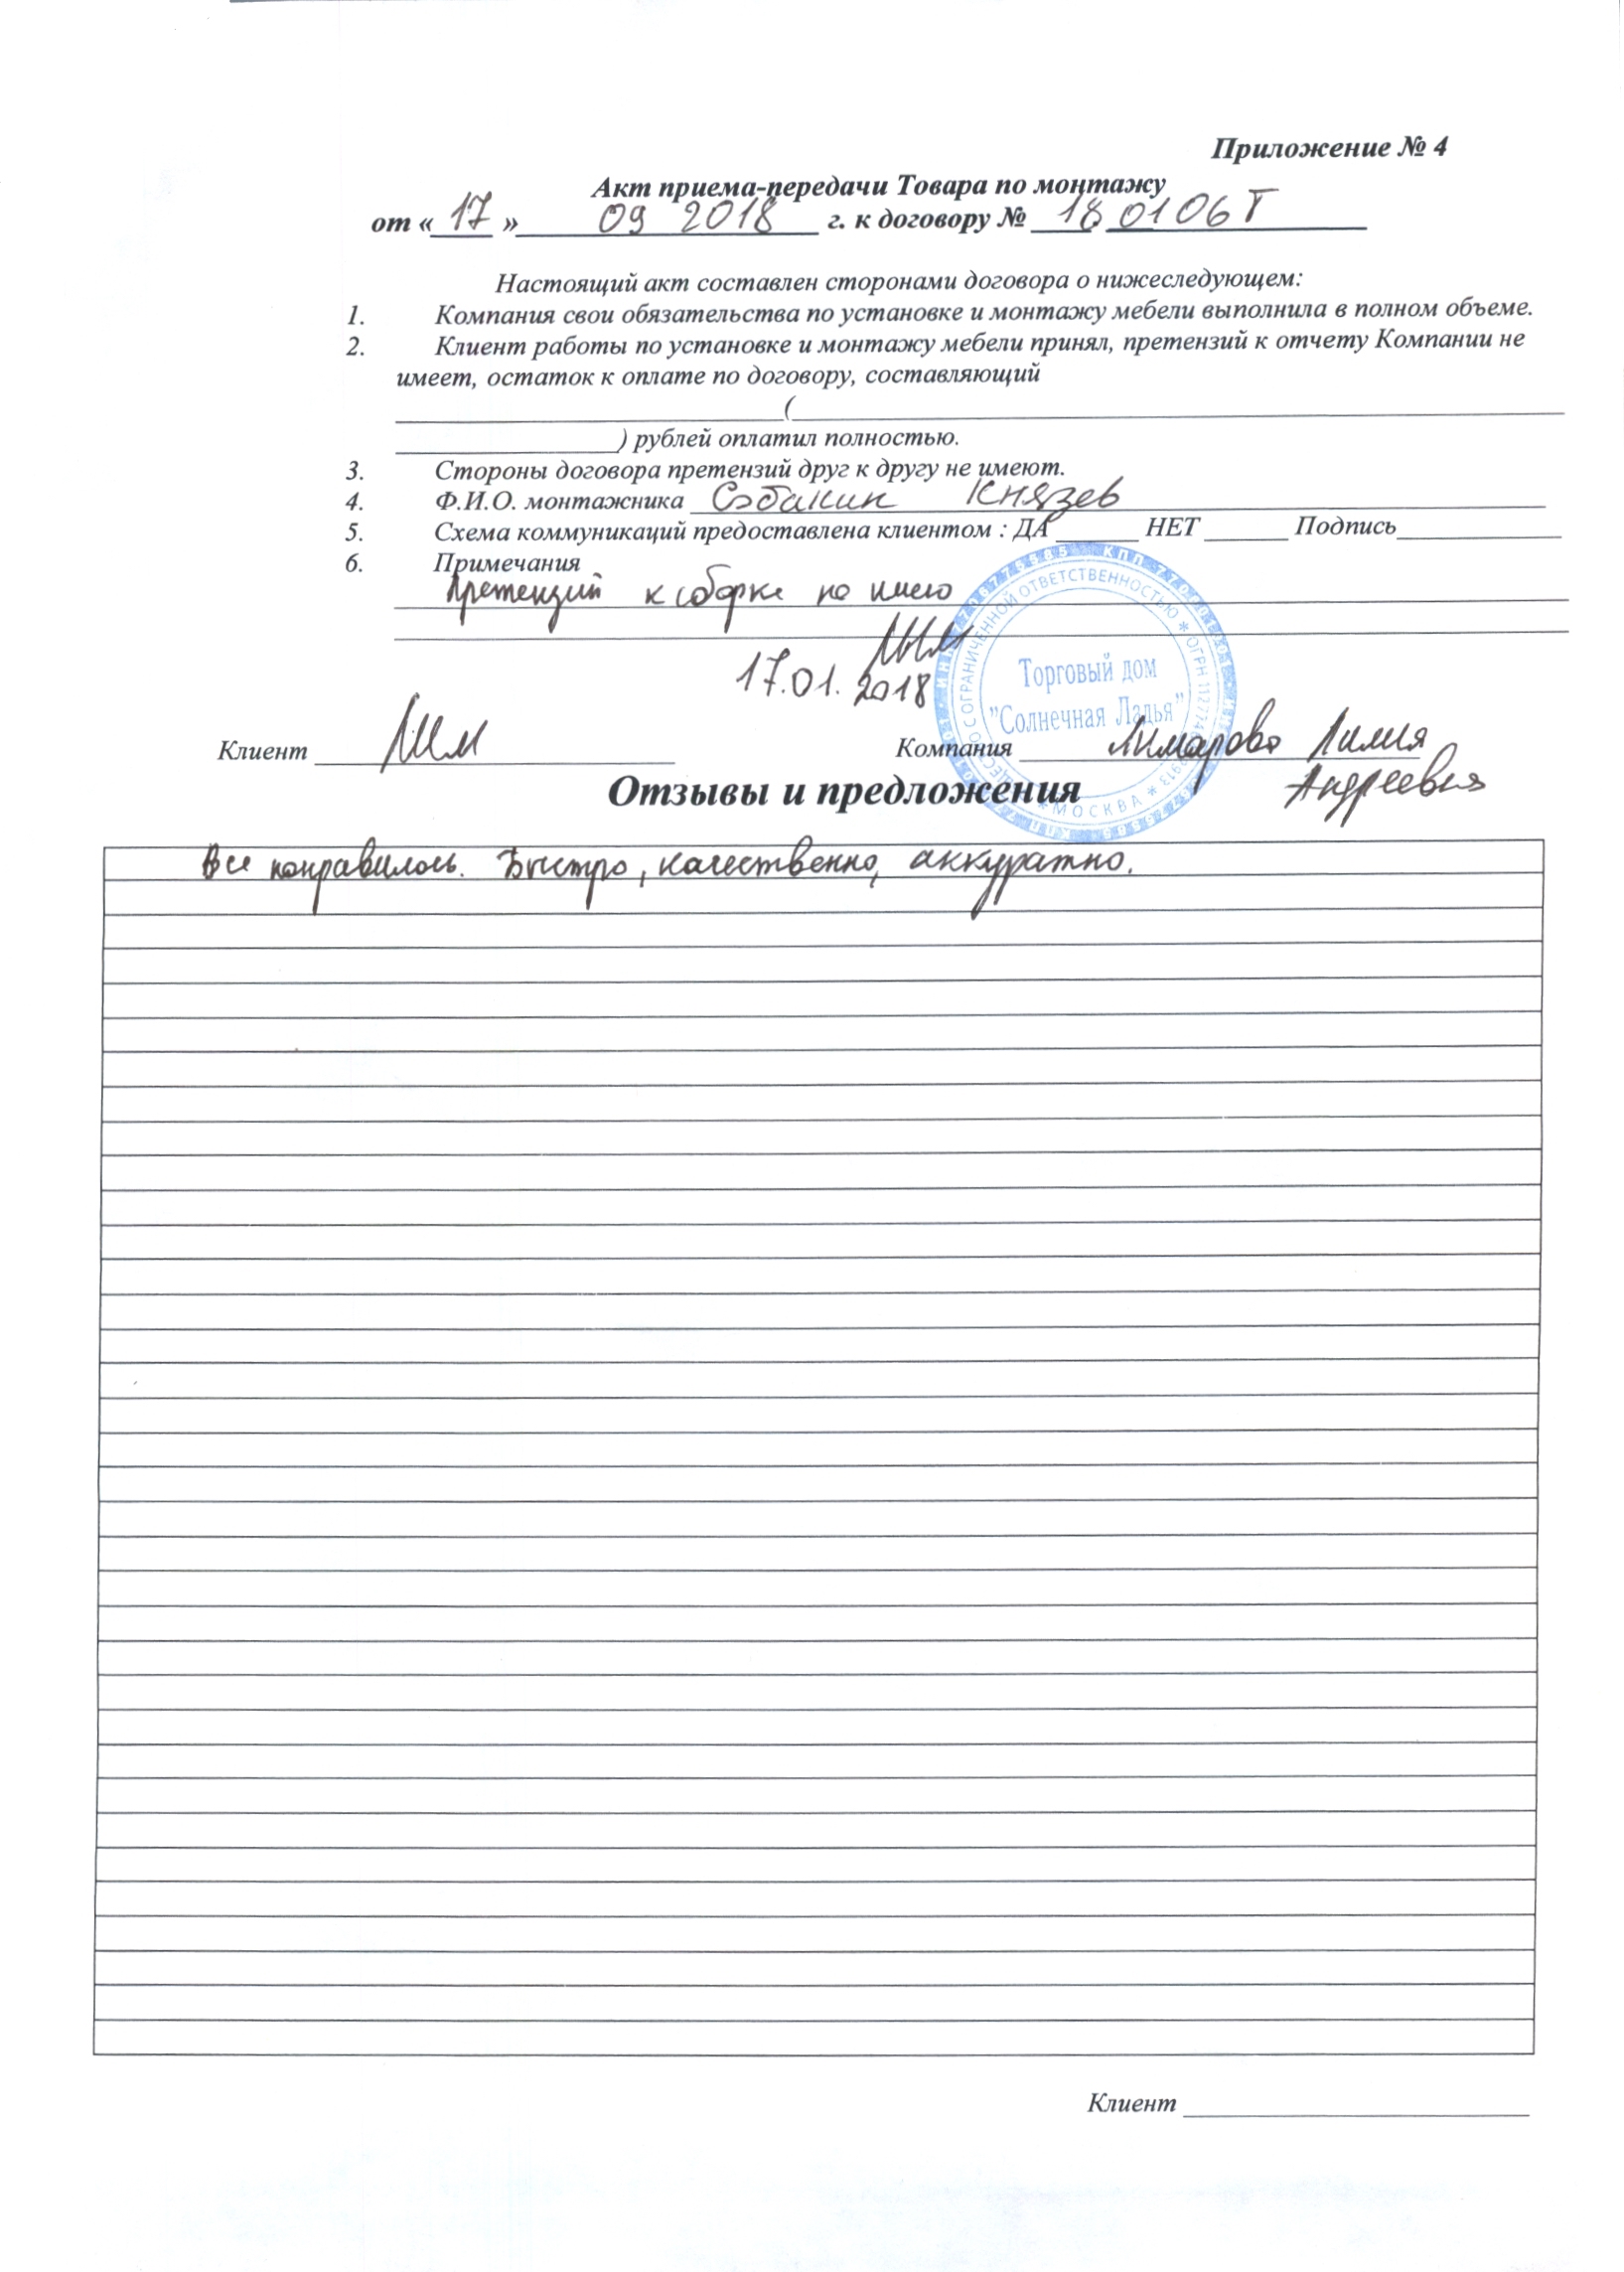 Приложение № 4
Акт приема-передачи Товара по монтажу
от « 17 » 09 2018 г. к договору № 180106Т
Настоящий акт составлен сторонами договора о нижеследующем:
1. Компания свои обязательства по установке и монтажу мебели выполнила в полном объеме.
2. Клиент работы по установке и монтажу мебели принял, претензий к отчету Компании не
имеет, остаток к оплате по договору, составляющий
(
) рублей оплатил полностью.
3. Стороны договора претензий друг к другу не имеют.
4. Ф.И.О. монтажника Собакин Князев
5. Схема коммуникаций предоставлена клиентом : ДА НЕТ Подпись
6. Примечания
Претензий к сборке не имею
17.01.2018
Торговый дом
"Солнечная Ладья"
МОСКВА
Клиент
Компания Лилия
Андреевна
Отзывы и предложения
Все понравилось. Быстро, качественно, аккуратно.
Клиент